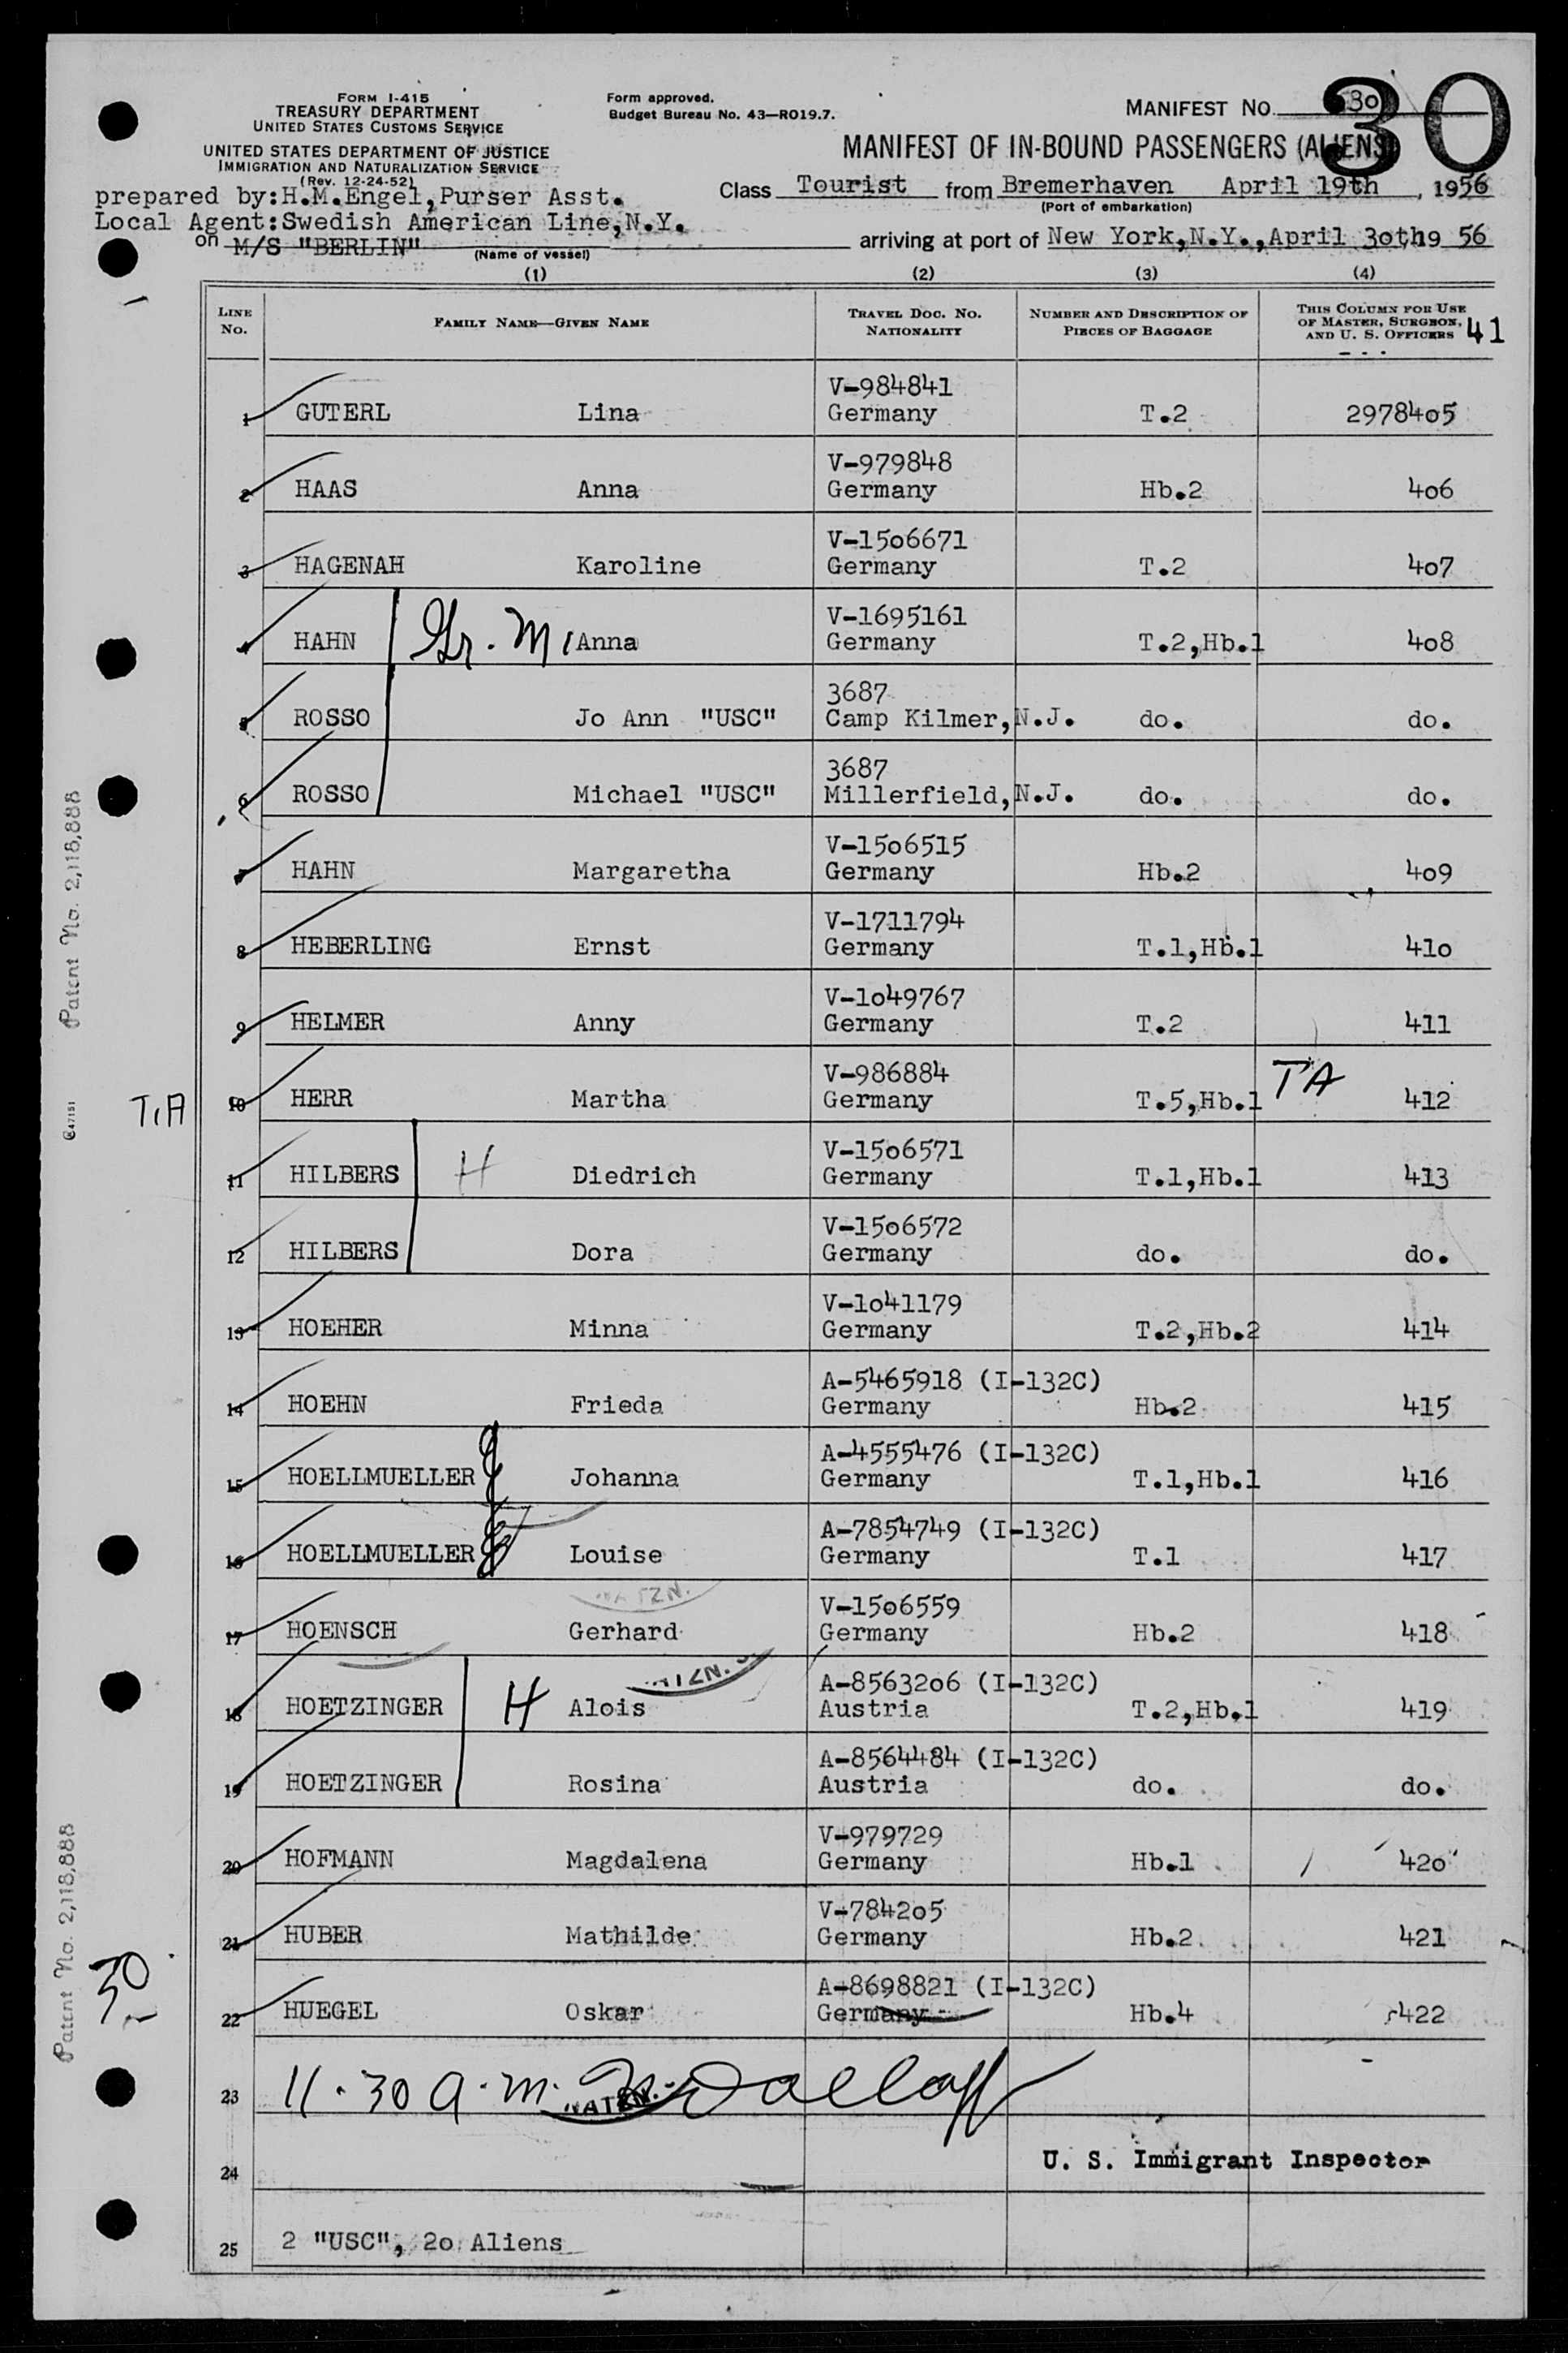 FORM I-415
TREASURY DEPARTMENT
UNITED STATES CUSTOMS SERVICE
UNITED STATES DEPARTMENT OF JUSTICE
IMMIGRATION AND NATURALIZATION SERVICE
(Rev. 12-24-52)
Form approved.
Budget Bureau No. 43—RO19.7.
MANIFEST NO. 30
30
MANIFEST OF IN-BOUND PASSENGERS (ALIENS)
prepared by:H.M.Engel,Purser Asst.
Class Tourist from Bremerhaven April 19th, 1956
(Port of embarkation)
Local Agent:Swedish American Line,N.Y.
on M/S "BERLIN" arriving at port of New York,N.Y.,April 3oth19 56
(Name of vessel)
(1) (2) (3) (4)
LINE NO. FAMILY NAME—GIVEN NAME TRAVEL DOC. NO. NATIONALITY NUMBER AND DESCRIPTION OF PIECES OF BAGGAGE THIS COLUMN FOR USE OF MASTER, SURGEON, AND U. S. OFFICERS 41
V-984841
1 GUTERL Lina Germany T.2 29784o5
V-979848
2 HAAS Anna Germany Hb.2 4o6
V-15o6671
3 HAGENAH Karoline Germany T.2 4o7
V-1695161
4 HAHN Gr. M Anna Germany T.2,Hb.1 4o8
3687
5 ROSSO Jo Ann "USC" Camp Kilmer,N.J. do. do.
3687
6 ROSSO Michael "USC" Millerfield,N.J. do. do.
V-15o6515
7 HAHN Margaretha Germany Hb.2 4o9
V-1711794
8 HEBERLING Ernst Germany T.1,Hb.1 41o
V-1o49767
9 HELMER Anny Germany T.2 411
V-986884
T.A 10 HERR Martha Germany T.5,Hb.1 TA 412
V-15o6571
11 HILBERS H Diedrich Germany T.1,Hb.1 413
V-15o6572
12 HILBERS Dora Germany do. do.
V-1o41179
13 HOEHER Minna Germany T.2,Hb.2 414
A-5465918 (I-132C)
14 HOEHN Frieda Germany Hb.2 415
A-4555476 (I-132C)
15 HOELLMUELLER Johanna Germany T.1,Hb.1 416
A-7854749 (I-132C)
16 HOELLMUELLER Louise Germany T.1 417
V-15o6559
17 HOENSCH Gerhard Germany Hb.2 418
A-85632o6 (I-132C)
18 HOETZINGER H Alois Austria T.2,Hb.1 419
A-8564484 (I-132C)
19 HOETZINGER Rosina Austria do. do.
V-979729
20 HOFMANN Magdalena Germany Hb.1 42o
V-7842o5
21 HUBER Mathilde Germany Hb.2 421
A-8698821 (I-132C)
30 22 HUEGEL Oskar Germany Hb.4 422
23 11.30 a.m.
24 U. S. Immigrant Inspector
25 2 "USC", 2o Aliens
Patent No. 2,118,888
C47151
Patent No. 2,118,888